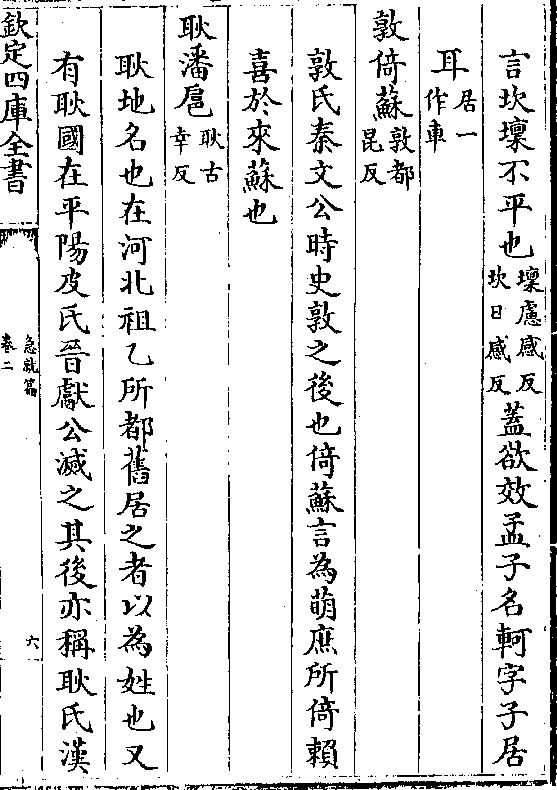 言坎壈不平也壈慮感反坎日感反蓋欲效孟子名軻字子居
耳居一作車
敦倚蘇敦都昆反
敦氏秦文公時史敦之後也倚蘇言為萌庶所倚賴
喜於來蘇也
耿潘扈耿古幸反
耿地名也在河北祖乙所都舊居之者以為姓也又
有耿國在平陽皮氏晉獻公滅之其後亦稱耿氏漢
欽定四庫全書
急就篇
卷二
六